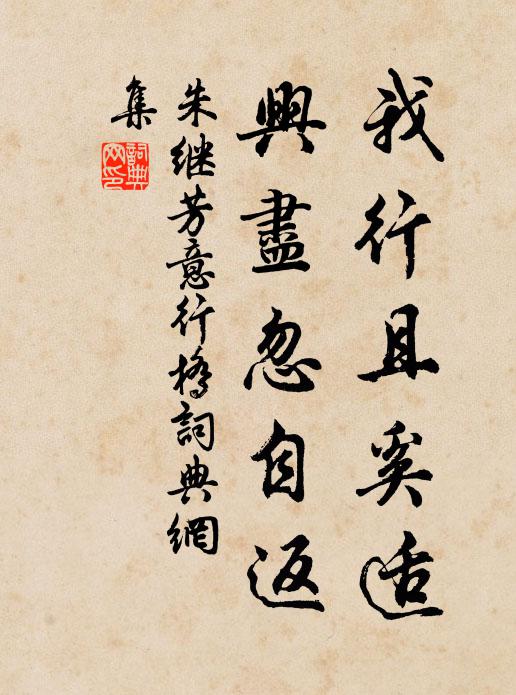 我行且奚适
興盡忽自返
朱继芳意行橋詞典網
集
詞典網印